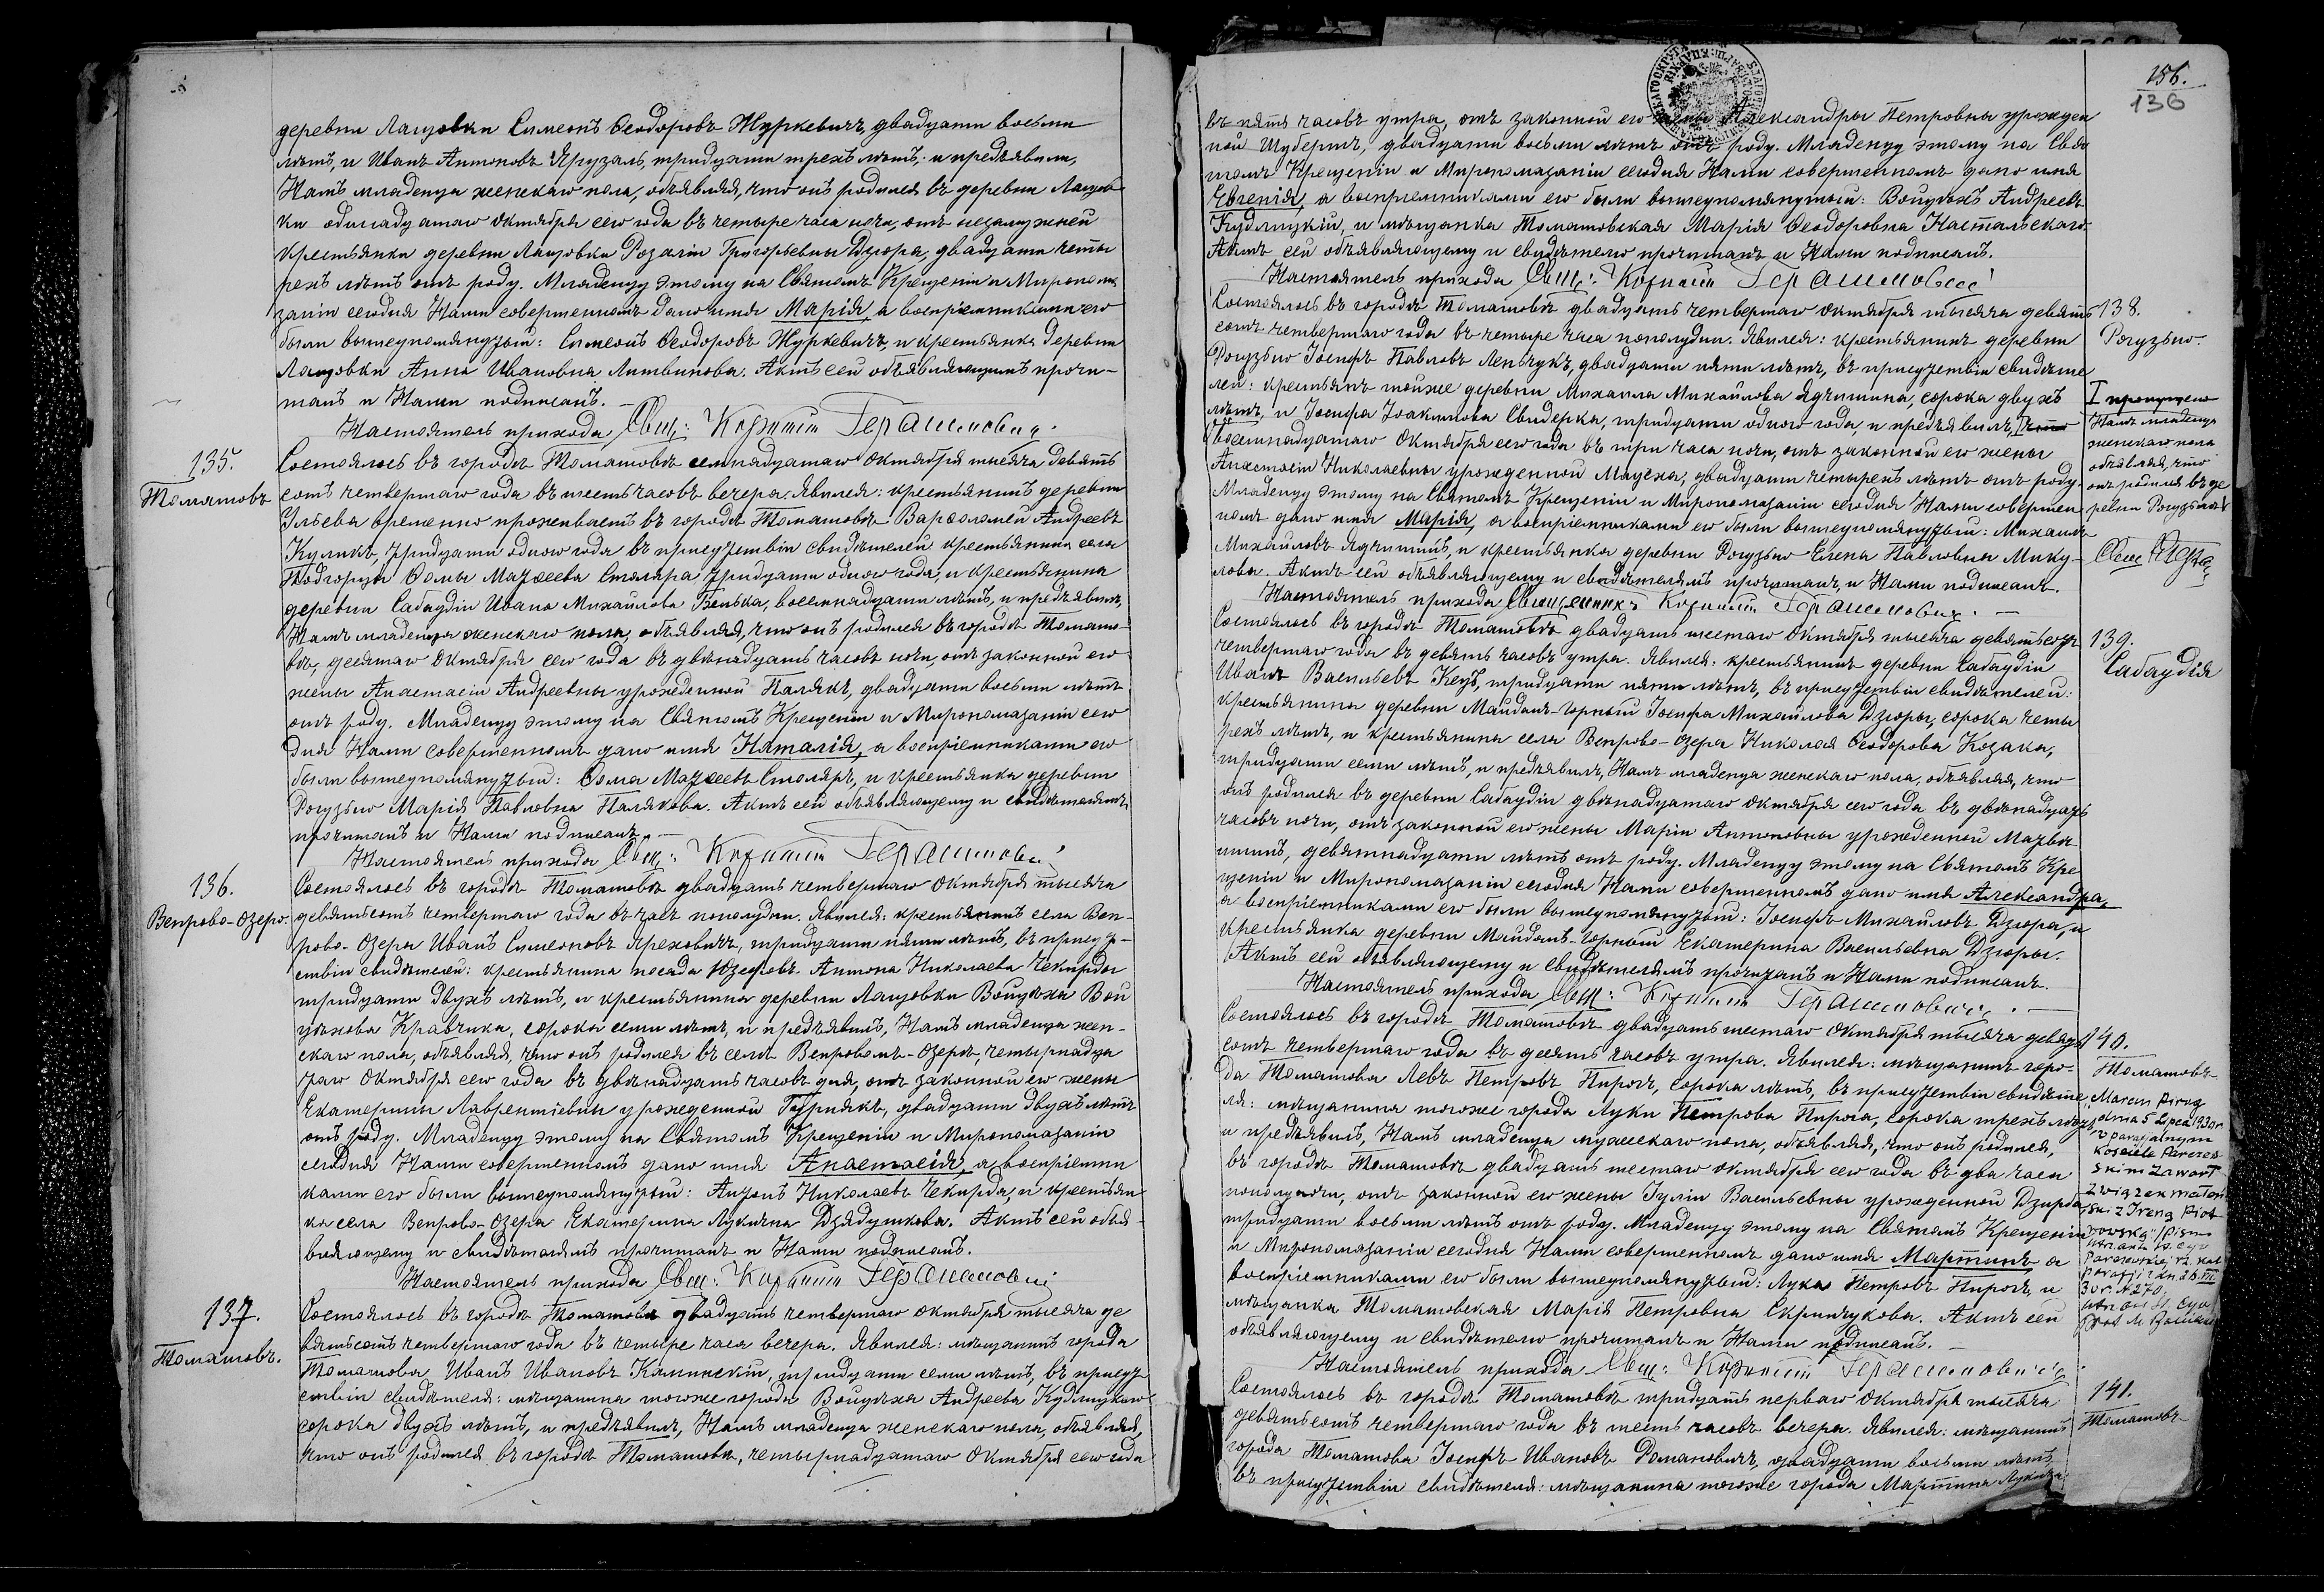 деревни Лащовки Симеонъ Ѳеодоровъ Журкевичъ, двадцати восьми
лѣтъ, и Иванъ Антоновъ Ярузаль, тридцати трехъ лѣтъ, и предъявили,
Намъ младенца женскаго пола, объявляя, что онъ родился въ деревни Лащов
ки одинадцатаго Октября сего года въ четыре часа ночи, отъ незамужней
крестьянки деревни Лащовки Розаліи Григорьевны Дзюра, двадцати четы
рехъ лѣтъ отъ роду. Младенцу этому на Святомъ Крещеніи и Миропома
заніи сегодня Нами совершенномъ дано имя Марія, а воспріемниками его
были вышеупомянутый: Симеонъ Ѳеодоровъ Журкевичъ, и крестьянка деревни
Лащовки Анна Ивановна Литвинова. Актъ сей объявляющимъ прочи-
танъ и Нами подписанъ.
Настоятель прихода Свящ:
135.
Томашовъ
Состоялось въ городѣ Томашовѣ семнадцатаго Октября тысяча девять
сотъ четвертаго года въ шесть часовъ вечера. Явился: крестьянинъ деревни
Ульева временно проживаетъ въ городѣ Томашовѣ Варѳоломей Андреевъ
Куликъ, тридцати одного года въ присутствіи свидѣтелей крестьянина села
Подгорцы Ѳомы Матѳеева Столяра, тридцати одного года, и крестьянина
деревни Сабаудіи Ивана Михайлова Бенька, восемнадцати лѣтъ, и предъявилъ,
Намъ младенца женскаго пола, объявляя, что онъ родился въ городѣ Томашо-
вѣ, десятаго Октября сего года въ двѣнадцать часовъ ночи, отъ законной его
жены Анастасіи Андреевны урожденной Палякъ, двадцати восьми лѣтъ
отъ роду. Младенцу этому на Святомъ Крещеніи и Миропомазаніи сего
дня Нами совершенномъ дано имя Наталія, а воспріемниками его
были вышеупомянутый: Ѳома Матѳеевъ Столяръ, и крестьянка деревни
Рогузьно Марія Павловна Палякова. Актъ сей объявляющему и свидѣтелямъ
прочитанъ и Нами подписанъ.
Настоятель прихода Свящ:
136.
Вепрово-Озеро.
Состоялось въ городѣ Томашовѣ двадцать четвертаго Октября тысяча
девятьсотъ четвертаго года въ часъ пополудни. Явился: крестьянинъ села Веп-
рово-Озеры Иванъ Симеоновъ Ореховичъ, тридцати пяти лѣтъ, въ присут-
ствіи свидѣтелей: крестьянина посада Юзефовъ Антона Николаева Чекирды
тридцати двухъ лѣтъ, и крестьянина деревни Лащовки Войцѣха Вой
цѣхова Кравчика, сорока семи лѣтъ, и предъявилъ, Намъ младенца жен-
скаго пола, объявляя, что онъ родился въ селѣ Вепровомъ-Озерѣ, четырнадца
таго Октября сего года въ двѣнадцать часовъ дня, отъ законной его жены
Екатерины Лаврентіевны урожденной Гурнякъ, двадцати двухъ лѣтъ
отъ роду. Младенцу этому на Святомъ Крещеніи и Миропомазаніи
сегодня Нами совершенномъ дано имя Анастасія, а воспріемни
ками его были вышеупомянутый: Антонъ Николаевъ Чекирда, и крестьян
ка села Вепрово-Озера Екатерина Лукична Дзядушкова. Актъ сей объя-
вляющему и свидѣтелямъ прочитанъ и Нами подписанъ.
Настоятель прихода Свящ:
137.
Томашовъ.
Состоялось въ городѣ Томашовѣ двадцать четвертаго Октября тысяча де
вятьсотъ четвертаго года въ четыре часа вечера. Явился: мѣщанинъ города
Томашова Иванъ Ивановъ Каминскій, тридцати семи лѣтъ, въ присут
ствіи свидѣтеля: мѣщанина тогоже города Войцѣха Андреева Кудлицкаго
сорока двухъ лѣтъ, и предъявилъ, Намъ младенца женскаго пола, объявляя,
что онъ родился въ городѣ Томашовѣ, четырнадцатаго Октября сего года
156.
136
въ пять часовъ утра, отъ законной его жены Александры Петровны урожден
ной Шубертъ, двадцати восьми лѣтъ отъ роду. Младенцу этому на Свя
томъ Крещеніи и Миропомазаніи сегодня Нами совершенномъ дано имя
Евгенія, а воспріемниками его были вышеупомянутый: Войцѣхъ Андреевъ
Кудлицкій, и мѣщанка Томашовская Марія Ѳеодоровна Настальскаго
Актъ сей объявляющему и свидѣтелю прочитанъ и Нами подписанъ.
Настоятель прихода Свящ:
138.
Рогузьно.
Состоялось въ городѣ Томашовѣ двадцать четвертаго Октября тысяча девять
сотъ четвертаго года въ четыре часа пополудни. Явился: крестьянинъ деревни
Рогузьно Іосифъ Павловъ Леньчукъ, двадцати пяти лѣтъ, въ присутствіи свидѣте
лей: крестьянъ тойже деревни Михаила Михайлова Ядчишина, сорока двухъ
лѣтъ, и Іосифа Іоакимова Свидерка, тридцати одного года, и предъявилъ,
восемнадцатаго Октября сего года въ три часа ночи, отъ законной его жены
Анастасіи Николаевны урожденной Мацѣха, двадцати четырехъ лѣтъ отъ роду.
Младенцу этому на Святомъ Крещеніи и Миропомазаніи сегодня Нами совершен
номъ дано имя Марія, а воспріемниками его были вышеупомянутый: Михаилъ
Михайловъ Ядчишинъ, и крестьянка деревни Рогузьно Елена Павловна Мику-
лова. Актъ сей объявляющему и свидѣтелямъ прочитанъ, и Нами подписанъ.
Настоятель прихода Священникъ
I пропущено
Намъ младенца
женскаго пола
объявляя, что
онъ родился въ де
ревни Рогузьнѣ
139.
Сабаудія
Состоялось въ городѣ Томашовѣ двадцать шестаго Октября тысяча девятьсотъ
четвертаго года въ девять часовъ утра. Явился: крестьянинъ деревни Сабаудіи
Иванъ Васильевъ Кецъ, тридцати пяти лѣтъ, въ присутствіи свидѣтелей:
крестьянина деревни Майданъ-Горный Іосифа Михайлова Дзюры, сорока четы
рехъ лѣтъ, и крестьянина села Вепрово-Озера Николая Ѳеодорова Козака,
тридцати семи лѣтъ, и предъявилъ, Намъ младенца женскаго пола, объявляя, что
онъ родился въ деревни Сабаудіи двѣнадцатаго Октября сего года въ двѣнадцать
часовъ ночи, отъ законной его жены Маріи Антоновны урожденной Матвѣ
ишинъ, девятнадцати лѣтъ отъ роду. Младенцу этому на Святомъ Кре
щеніи и Миропомазаніи сегодня Нами совершенномъ дано имя Александра,
а воспріемниками его были вышеупомянутый: Іосифъ Михайловъ Дзюра, и
крестьянка деревни Майданъ-Горный Екатерина Васильевна Дзюры.
Актъ сей объявляющему и свидѣтелямъ прочитанъ и Нами подписанъ.
Настоятель прихода Свящ:
140.
Томашовъ
Состоялось въ городѣ Томашовѣ двадцать шестаго Октября тысяча девять
сотъ четвертаго года въ десять часовъ утра. Явился: мѣщанинъ горо-
да Томашова Левъ Петровъ Пирогъ, сорока лѣтъ, въ присутствіи свидѣте
ля: мѣщанина тогоже города Луки Петрова Пирога, сорока трехъ лѣтъ,
и предъявилъ, Намъ младенца мужескаго пола, объявляя, что онъ родился,
въ городѣ Томашовѣ двадцать шестаго Октября сего года въ два часа
пополуночи, отъ законной его жены Іуліи Васильевны урожденной Дзирба,
тридцати восьми лѣтъ отъ роду. Младенцу этому на Святомъ Крещеніи
и Миропомазаніи сегодня Нами совершенномъ дано имя Мартинъ а
воспріемниками его были вышеупомянутый: Лука Петровъ Пирогъ, и
мѣщанка Томашовская Марія Петровна Скринчукова. Актъ сей
объявляющему и свидѣтелю прочитанъ и Нами подписанъ.
Настоятель прихода Свящ:
Marcin Pirog
dnia 5 lipca 1930 r.
w parafjalnym
Kościele
skim zawarł
związek małżeń
ski z Ireną Piot
rowską
141.
Томашовъ
Состоялось въ городѣ Томашовѣ тридцать перваго Октября тысяча
девятьсотъ четвертаго года въ шесть часовъ вечера. Явился: мѣщанинъ
города Томашова Іосифъ Ивановъ Романовичъ, двадцати восьми лѣтъ
въ присутствіи свидѣтеля: мѣщанина тогоже города Мартина Лукича